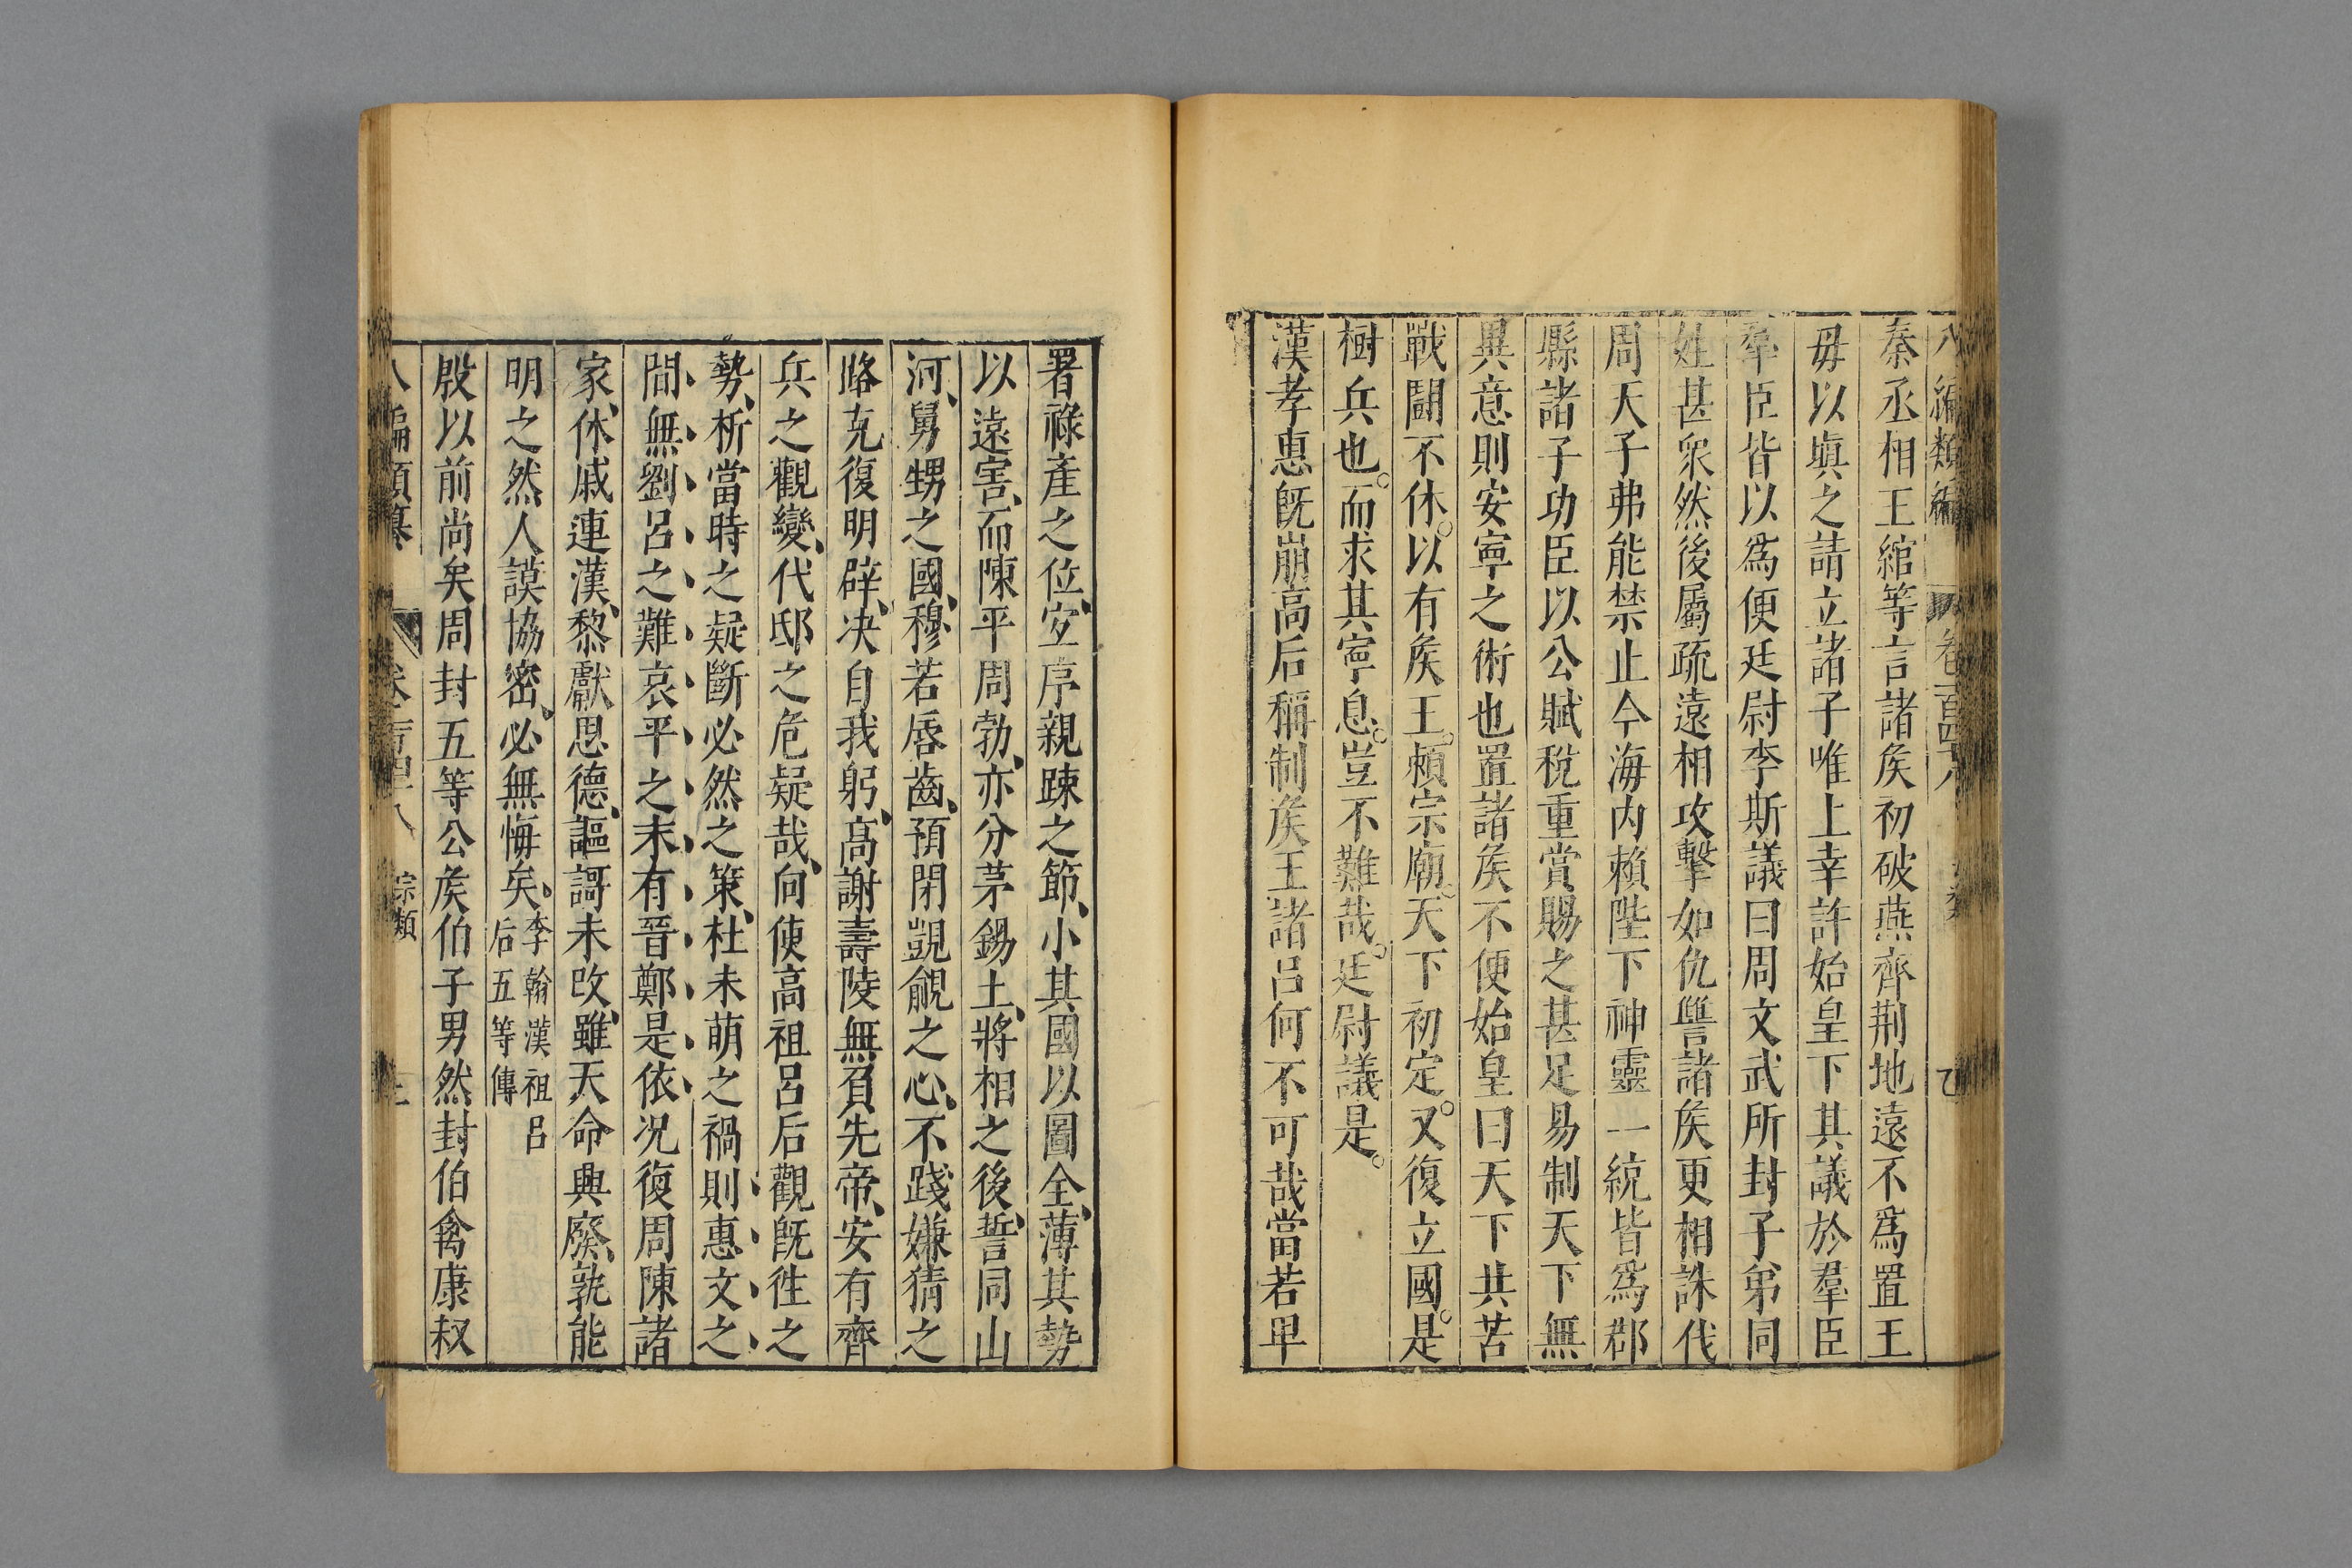 秦丞相王綰等言諸矦初破燕齊荆地遠不爲置王
毋以塡之請立諸子唯上幸許始皇下其議於羣臣
羣臣皆以爲便廷尉李斯議曰周文武所封子弟同
姓甚衆然後屬疏遠相攻擊如仇讐諸矦更相誅伐
周天子弗能禁止今海内賴陛下神靈一統皆爲郡
縣諸子功臣以公賦稅重賞賜之甚足易制天下無
異意則安寧之術也置諸矦不便始皇曰天下共苦
戰鬭不休。以有矦王。賴宗廟。天下初定。又復立國。是
樹兵也。而求其寧息。豈不難哉。廷尉議是。
漢孝惠旣崩高后稱制矦王諸呂何不可哉當若早
署祿產之位、定序親踈之節、小其國以圖全、薄其勢
以遠害、而陳平周勃、亦分茅錫土、將相之後、誓同山
河、舅甥之國、穆若唇齒、預閉覬覦之心、不踐嫌猜之
路、克復明辟、决自我躬、高謝壽陵無負先帝、安有齊
兵之觀變、代邸之危疑哉、向使高祖呂后觀旣徃之
勢、析當時之疑斷必然之策、杜未萌之禍則惠文之
間、無劉呂之難哀平之末有晉鄭是依况復周陳諸
家、休戚連漢、黎獻思德、謳謌未改、雖天命興廢、孰能
明之然人謨協密、必無悔矣、李翰漢祖呂
后五等傳
殷以前尚矣周封五等公矦伯子男然封伯禽康叔
八編類纂 卷一百四十八